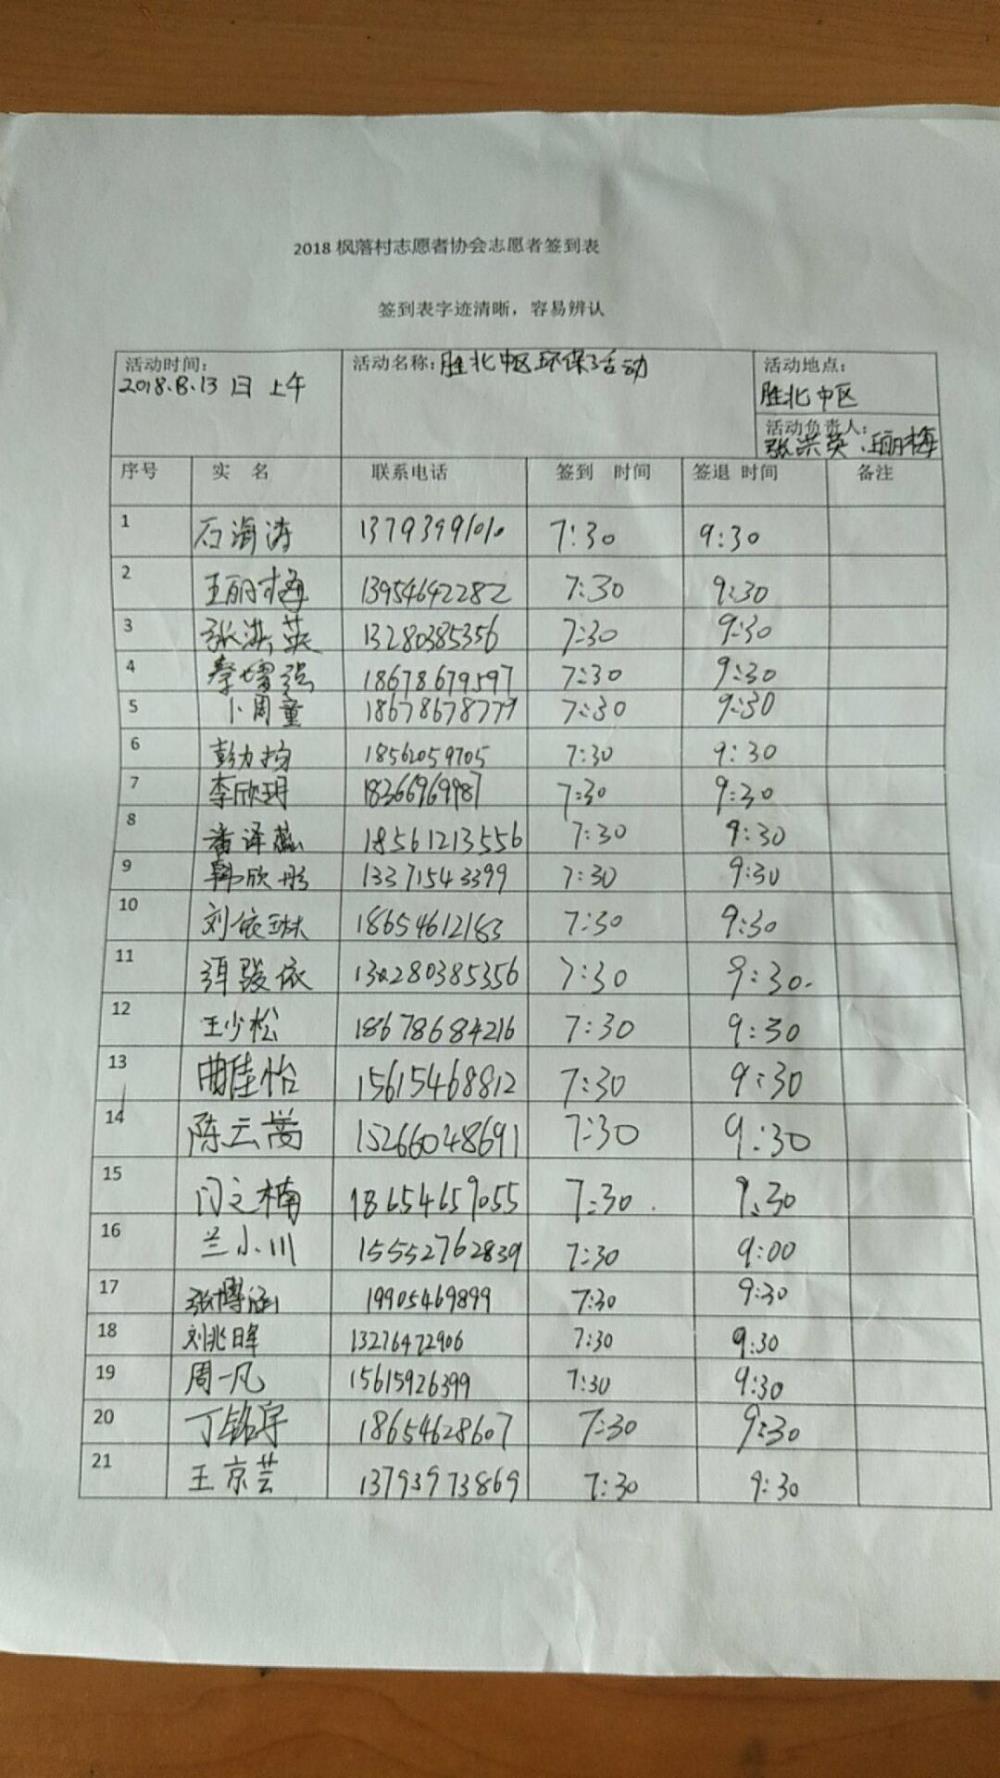 2018 枫落村志愿者协会志愿者签到表
签到表字迹清晰，容易辨认
活动时间： 活动名称：胜北中区环保活动 活动地点：
2018.8.13 日 上午 胜北中区
活动负责人：
张洪英、王丽梅
序号 实 名 联系电话 签到 时间 签退 时间 备注
1 石海涛 13793991010 7:30 9:30
2 王丽梅 13954642282 7:30 9:30
3 张洪英 13280385356 7:30 9:30
4 秦增强 18678679597 7:30 9:30
5 卜周童 18678678779 7:30 9:30
6 彭力均 18562059705 7:30 9:30
7 李欣玥 18366969987 7:30 9:30
8 潘泽 18561213556 7:30 9:30
9 韩欣彤 13371543399 7:30 9:30
10 刘依琳 18654612183 7:30 9:30
11 骏依 130280385356 7:30 9:30.
12 王少松 18678684216 7:30 9:30
13 曲佳怡 15615468812 7:30 9:30
14 陈云嵩 15266048691 7:30 9:30
15 闫之楠 18654659055 7:30 9:30
16 兰小川 15552762839 7:30 9:00
17 张博涵 19905469899 7:30 9:30
18 刘兆晖 13276472906 7:30 9:30
19 周一凡 15615926399 7:30 9:30
20 丁铭宇 18654628607 7:30 9:30
21 王京芸 13793973869 7:30 9:30